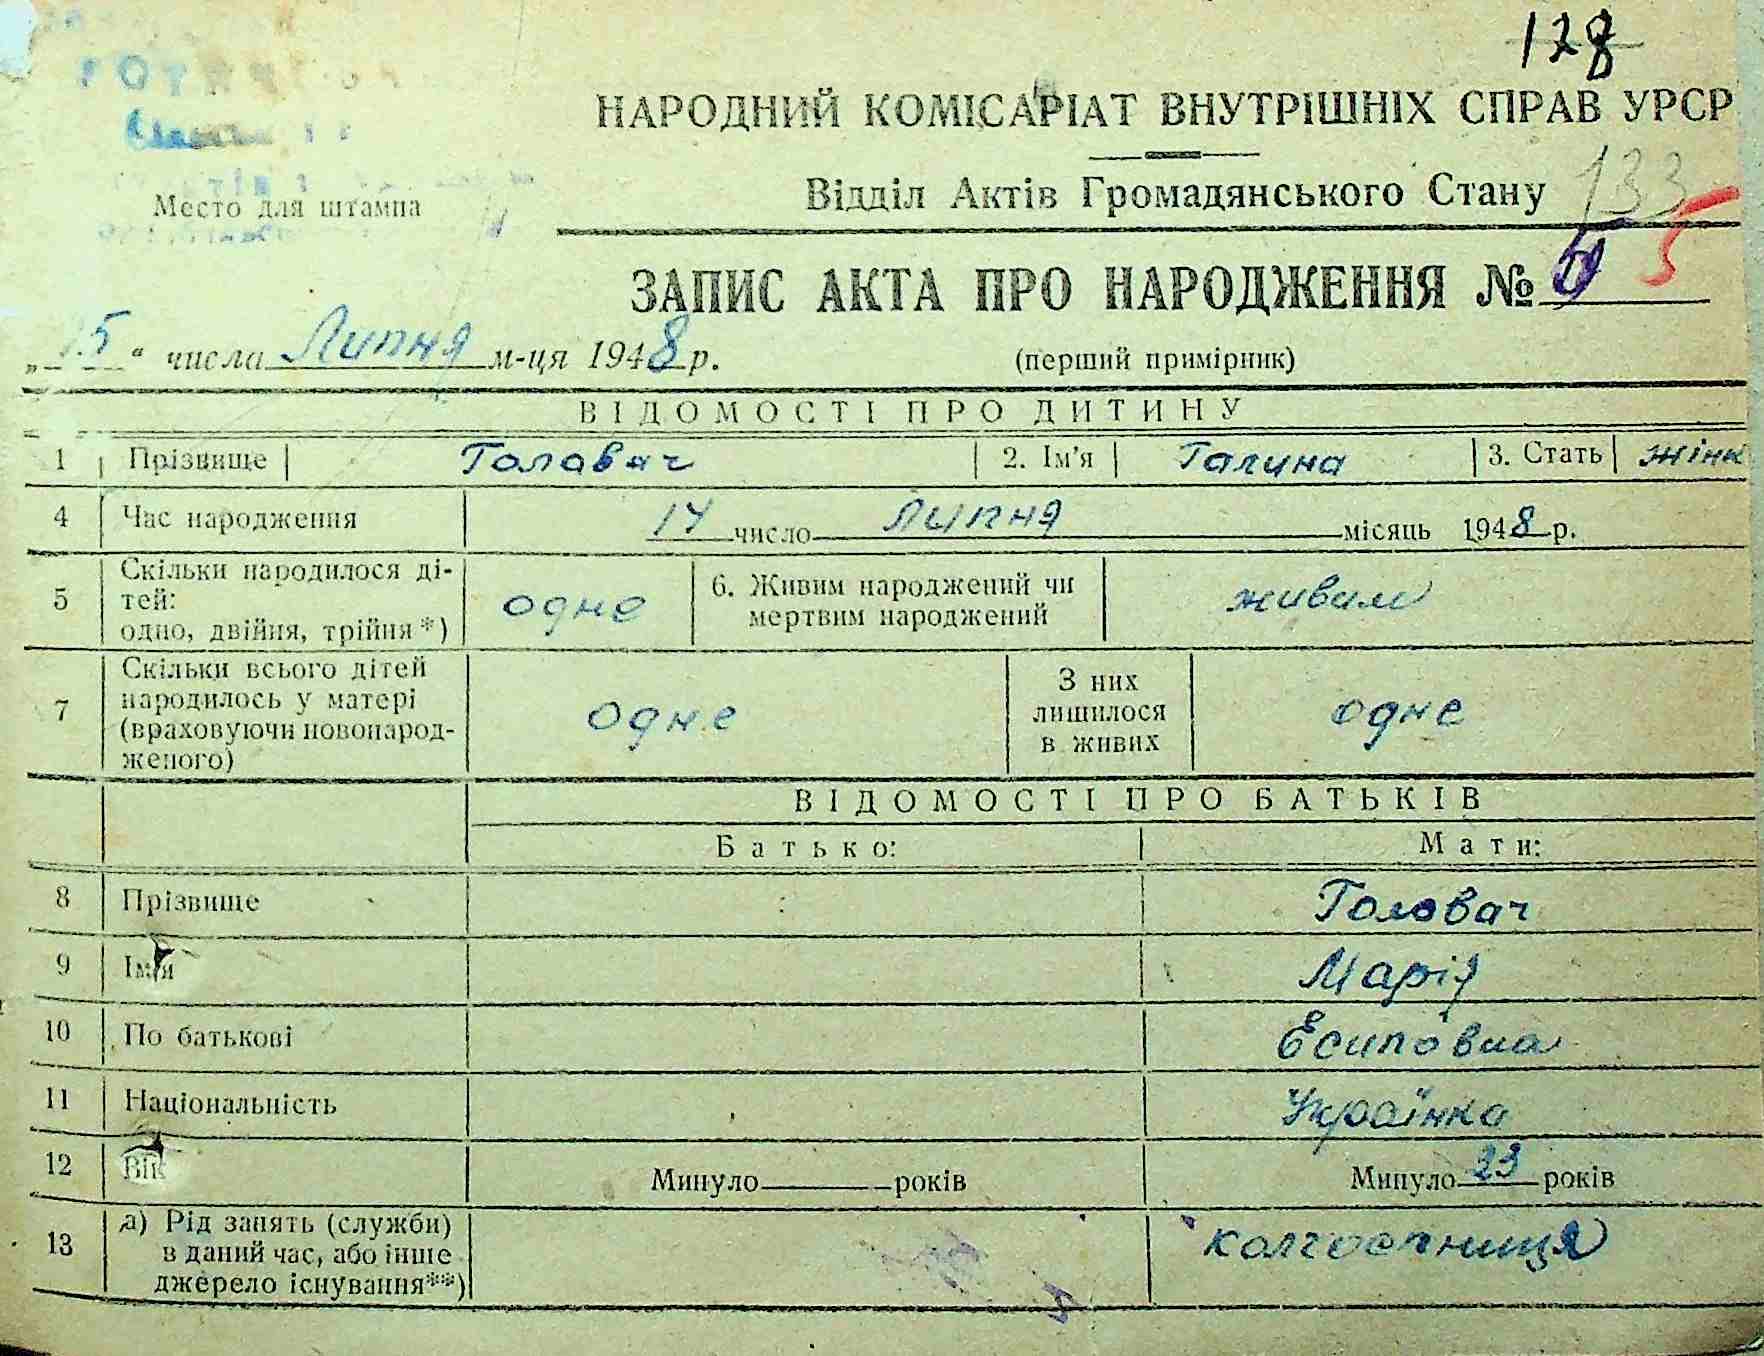 128
НАРОДНИЙ КОМІСАРІАТ ВНУТРІШНІХ СПРАВ УРСР
Відділ Актів Громадянського Стану 133
Место для штампа
ЗАПИС АКТА ПРО НАРОДЖЕННЯ № 5
„15“ числа Липня м-ця 1948 р. (перший примірник)
ВІДОМОСТІ ПРО ДИТИНУ
1 Прізвище Головач 2. Ім'я Галина 3. Стать жінк
4 Час народження 14 число Липня місяць 1948 р.
5 Скільки народилося ді-
тей:
одно, двійня, трійня*) одне 6. Живим народжений чи
мертвим народжений живим
7 Скільки всього дітей
народилось у матері
(враховуючи новонарод-
женого) одне З них
лишилося
в живих одне
ВІДОМОСТІ ПРО БАТЬКІВ
Батько: Мати:
8 Прізвище Головач
9 Ім'я Марія
10 По батькові Єсиповна
11 Національність Українка
12 Вік Минуло років Минуло 23 років
13 а) Рід занять (служби)
в даний час, або інше
джерело існування**) колгоспниця